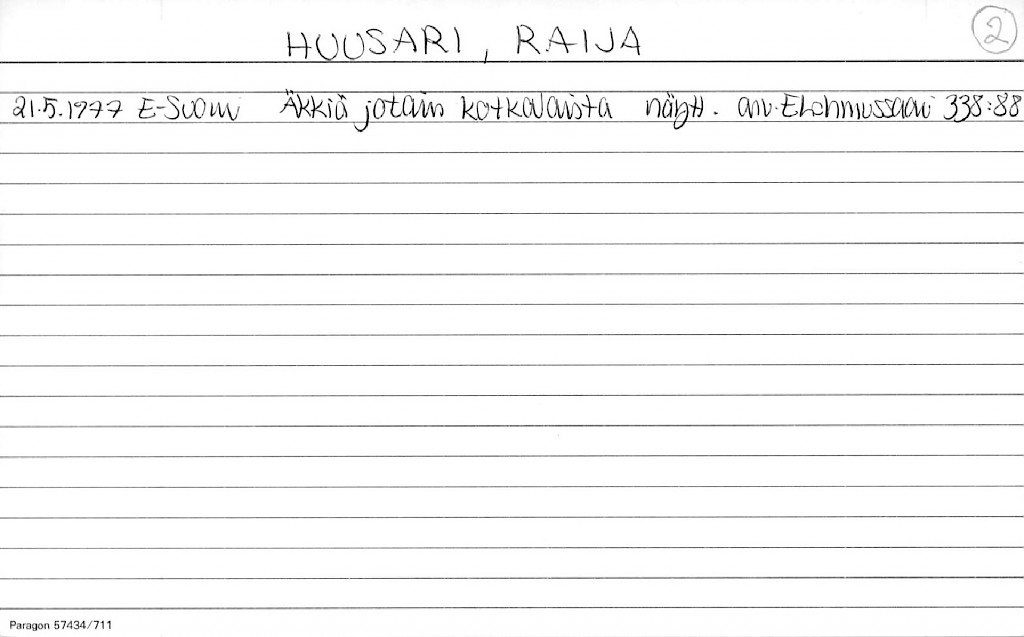 HUUSARI, RAIJA 2
21.5.1977 E-Suomi Äkkiä jotain kotkalaista näytt. arv. E Lohmussaari 338:88
Paragon 57434/711